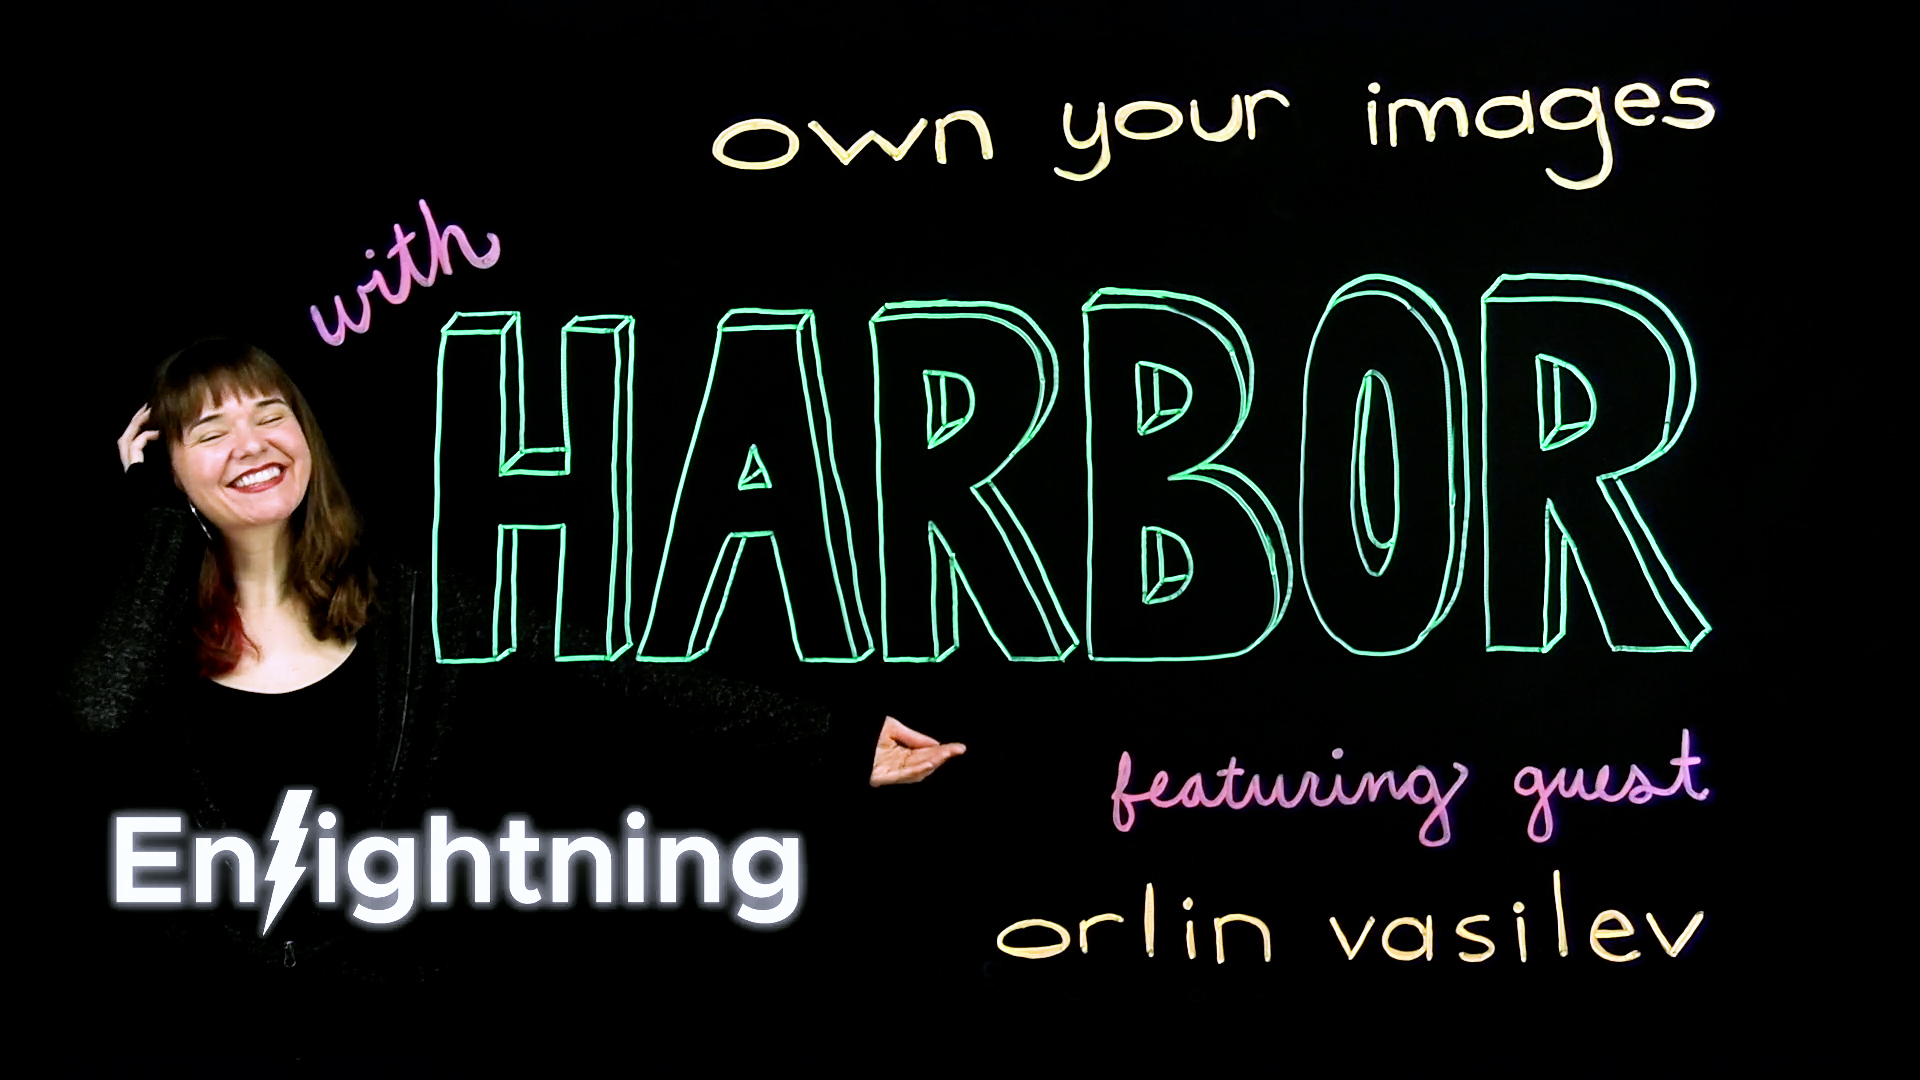 own your images
with
HARBOR
featuring guest
orlin vasilev
Enlightning